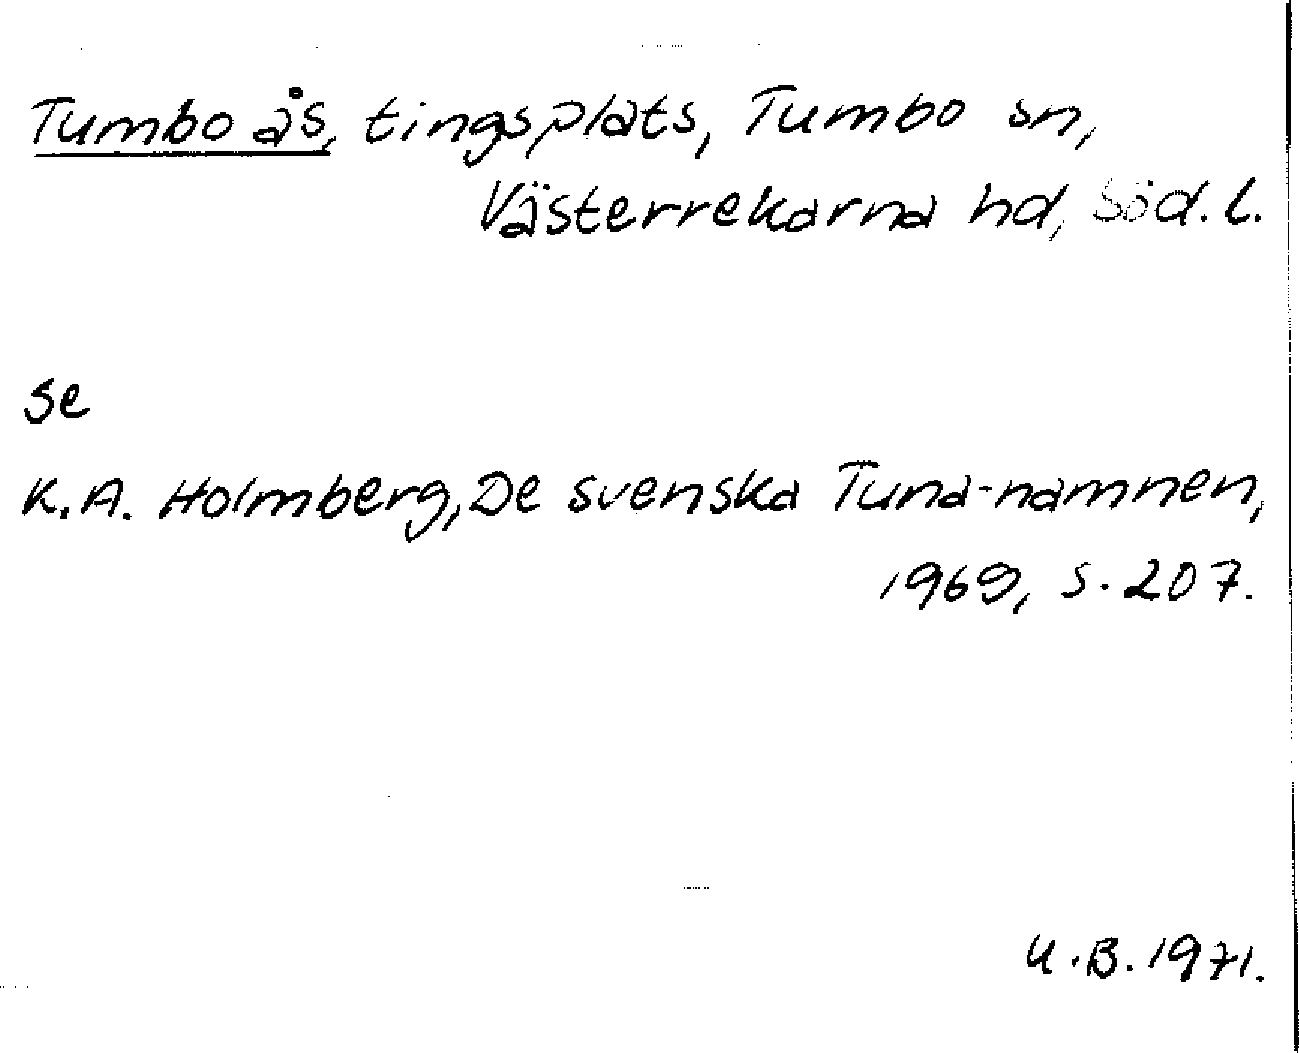 Tumbo ås, tingsplats, Tumbo sn,
Västerrekarna hd, Söd. l.
se
K.A. Holmberg, De svenska Tuna-namnen,
1969, s. 207.
U.B. 1971.